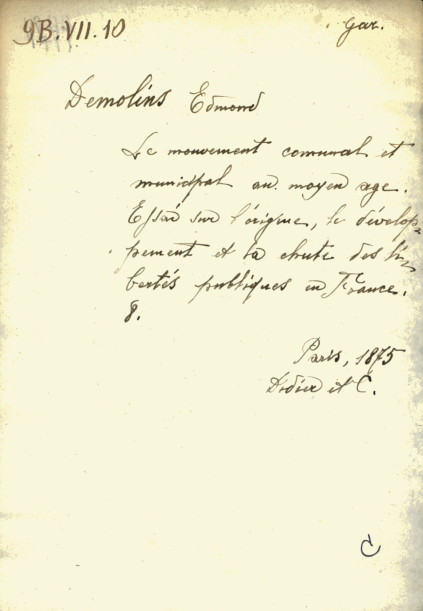 9B.VII.10
Gar.
Demolins Edmond
Le mouvement comunal et
municipal au moyen age.
Essai sur l'origine, le dévelop-
pement et la chute des li-
bertés publiques en France.
8.
Paris, 1875
Didier et C.
C